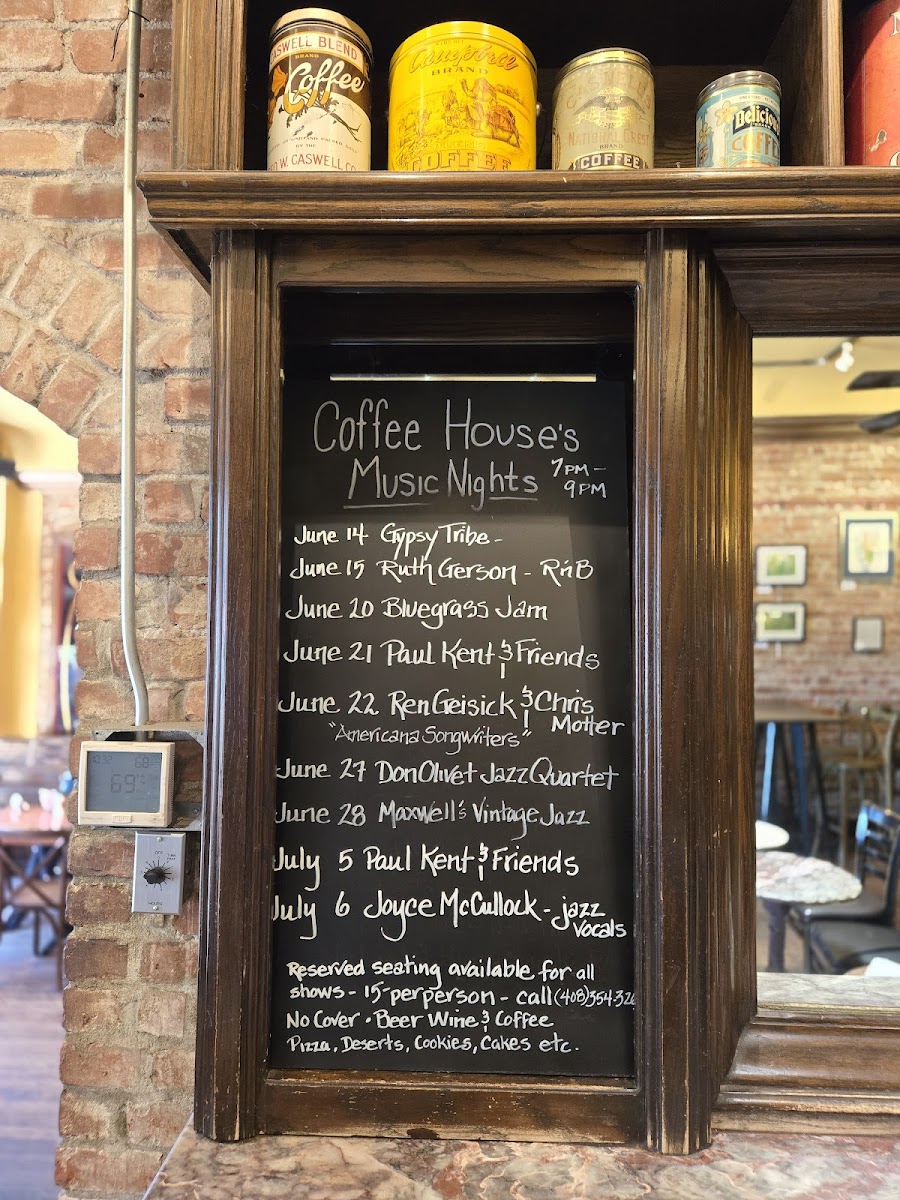 CASWELL BLEND
BRAND
Coffee
BY THE
W. CASWELL CO
Campbell
BRAND
COFFEE
NATIONAL CREST
BRAND
COFFEE
Delicious
COFFEE
Coffee House's
Music Nights 7PM-
9PM
June 14 Gypsy Tribe -
June 15 Ruth Gerson - R'n'B
June 20 Bluegrass Jam
June 21 Paul Kent & Friends
June 22 Ren Geisick & Chris
Motter
"Americana Songwriters"
June 27 Don Olivet Jazz Quartet
June 28 Maxwell's Vintage Jazz
July 5 Paul Kent & Friends
July 6 Joyce McCullock - jazz
vocals
Reserved seating available for all
shows - 15- per person - call (408)354-326
No Cover • Beer Wine & Coffee
Pizza, Deserts, Cookies, Cakes etc.
69
68